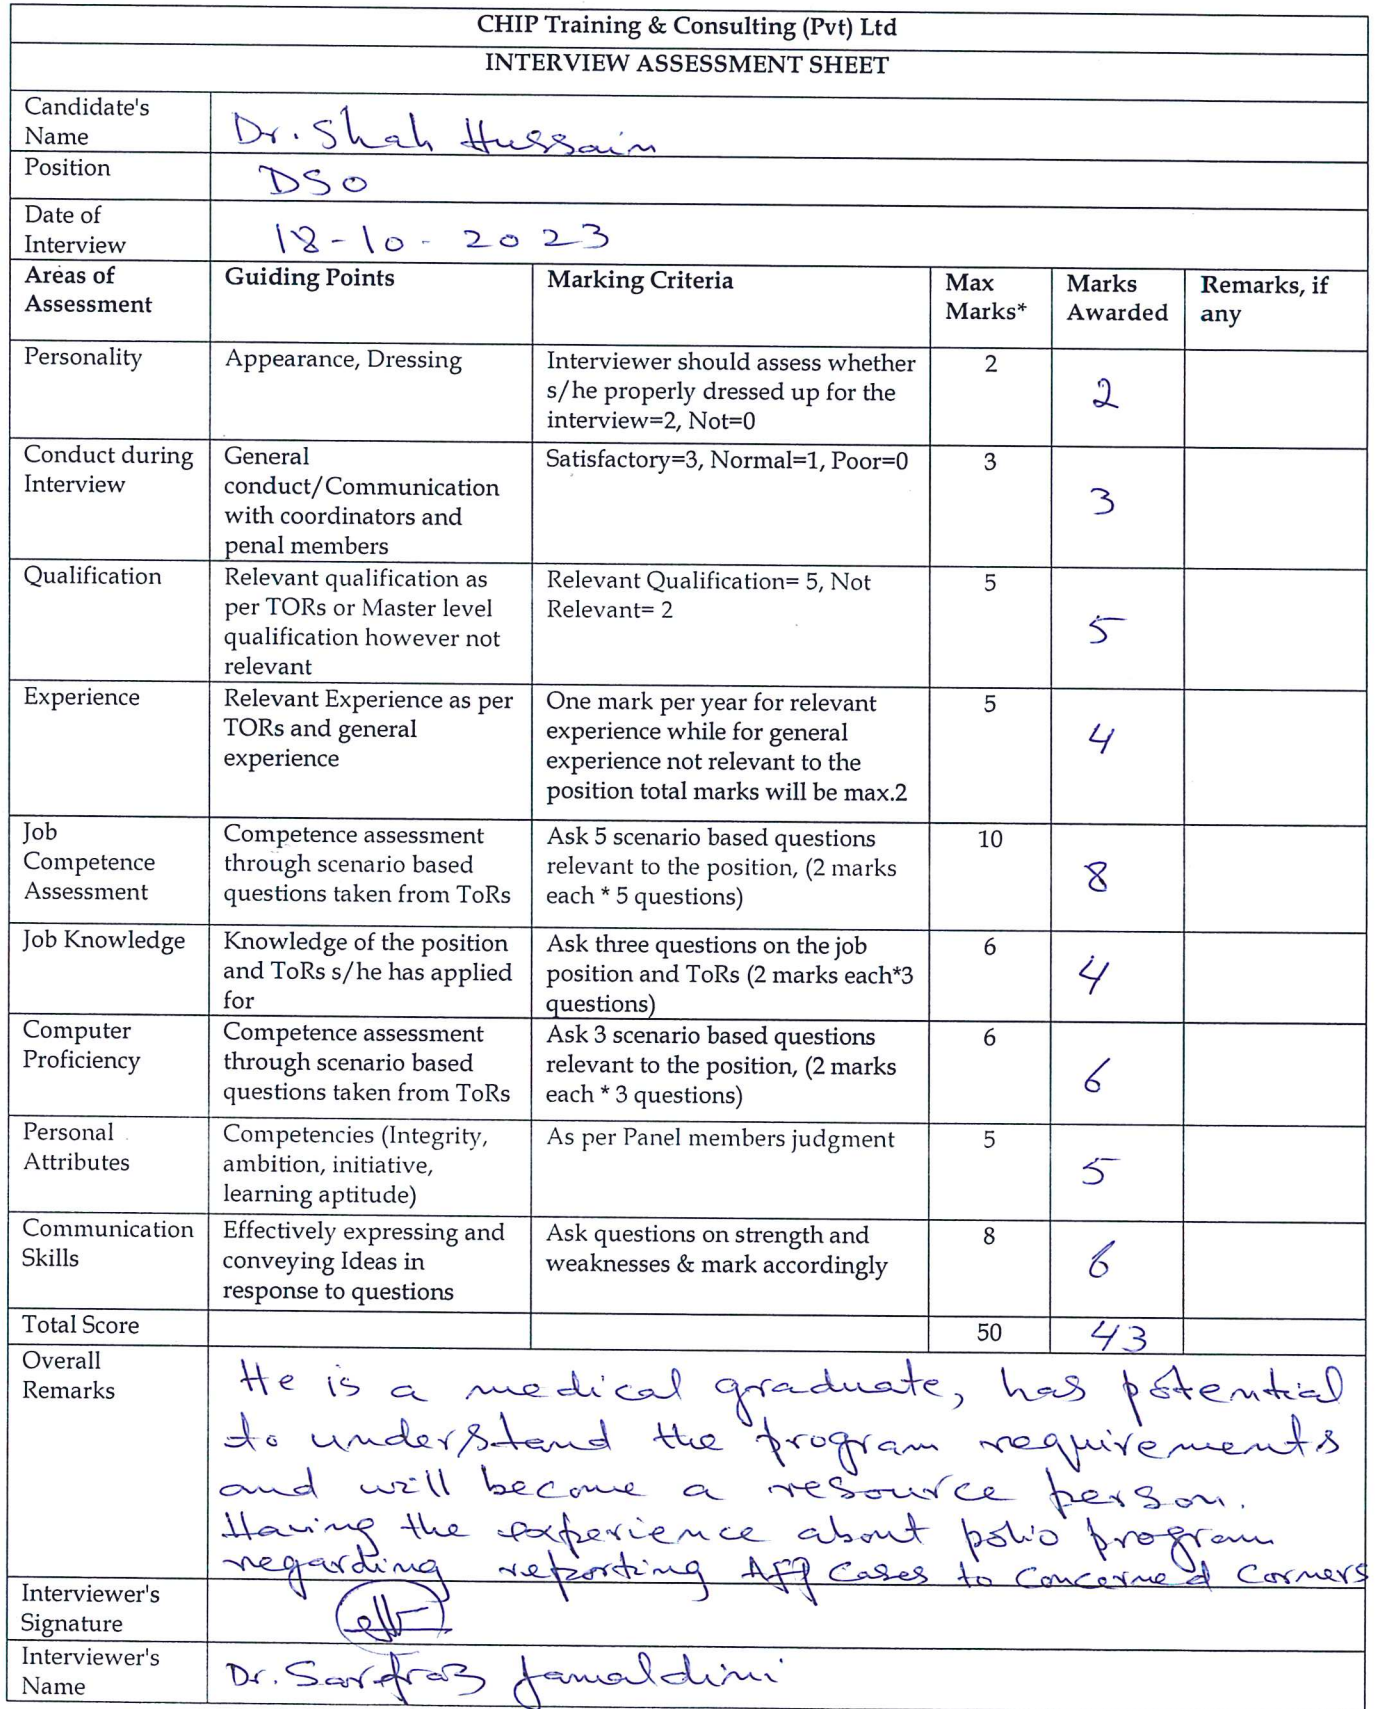 CHIP Training & Consulting (Pvt) Ltd
INTERVIEW ASSESSMENT SHEET
Candidate's
Name
Dr. Shah Hussain
Position
DSO
Date of
Interview
18-10-2023
Areas of
Assessment
Guiding Points
Marking Criteria
Max
Marks*
Marks
Awarded
Remarks, if
any
Personality
Appearance, Dressing
Interviewer should assess whether
s/he properly dressed up for the
interview=2, Not=0
2
2
Conduct during
Interview
General
conduct/Communication
with coordinators and
penal members
Satisfactory=3, Normal=1, Poor=0
3
3
Qualification
Relevant qualification as
per TORs or Master level
qualification however not
relevant
Relevant Qualification= 5, Not
Relevant= 2
5
5
Experience
Relevant Experience as per
TORs and general
experience
One mark per year for relevant
experience while for general
experience not relevant to the
position total marks will be max.2
5
4
Job
Competence
Assessment
Competence assessment
through scenario based
questions taken from ToRs
Ask 5 scenario based questions
relevant to the position, (2 marks
each * 5 questions)
10
8
Job Knowledge
Knowledge of the position
and ToRs s/he has applied
for
Ask three questions on the job
position and ToRs (2 marks each*3
questions)
6
4
Computer
Proficiency
Competence assessment
through scenario based
questions taken from ToRs
Ask 3 scenario based questions
relevant to the position, (2 marks
each * 3 questions)
6
6
Personal
Attributes
Competencies (Integrity,
ambition, initiative,
learning aptitude)
As per Panel members judgment
5
5
Communication
Skills
Effectively expressing and
conveying Ideas in
response to questions
Ask questions on strength and
weaknesses & mark accordingly
8
6
Total Score
50
43
Overall
Remarks
He is a medical graduate, has potential
to understand the program requirements
and will become a resource person.
Having the experience about polio program
regarding reporting AFP Cases to Concerned Corners
Interviewer's
Signature
Interviewer's
Name
Dr. Sarfraz Jamaldini